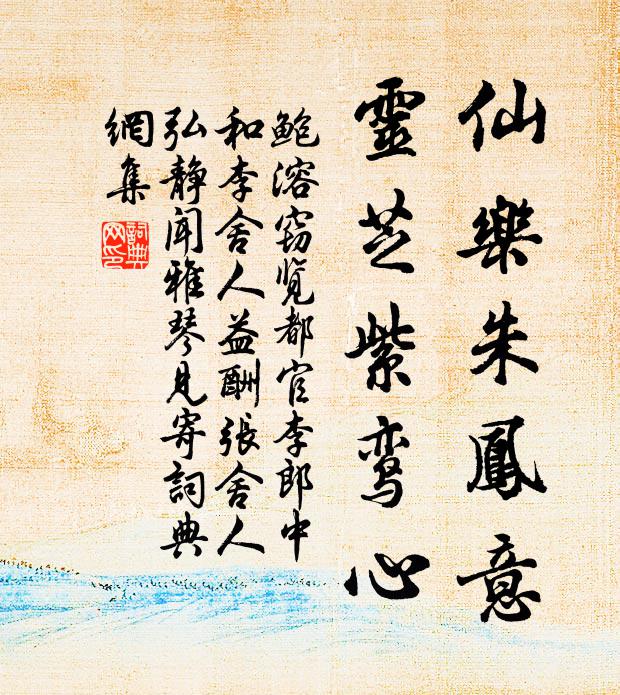 仙樂朱鳳意
靈芝紫鸾心
鲍溶窃览都官李郎中
和李舍人益酬張舍人
弘靜闻雅琴見寄詞典
網集
詞典
网印